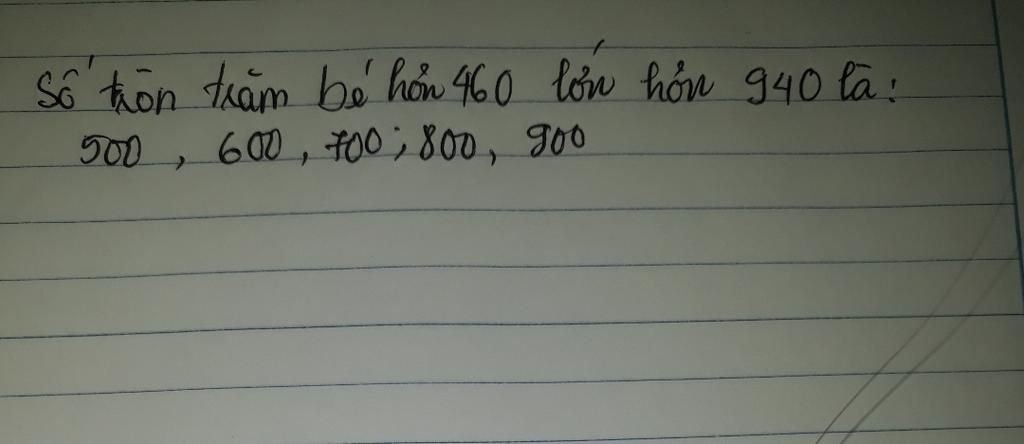 Số tròn trăm bé hơn 460 lớn hơn 940 là:
500, 600, 700; 800, 900